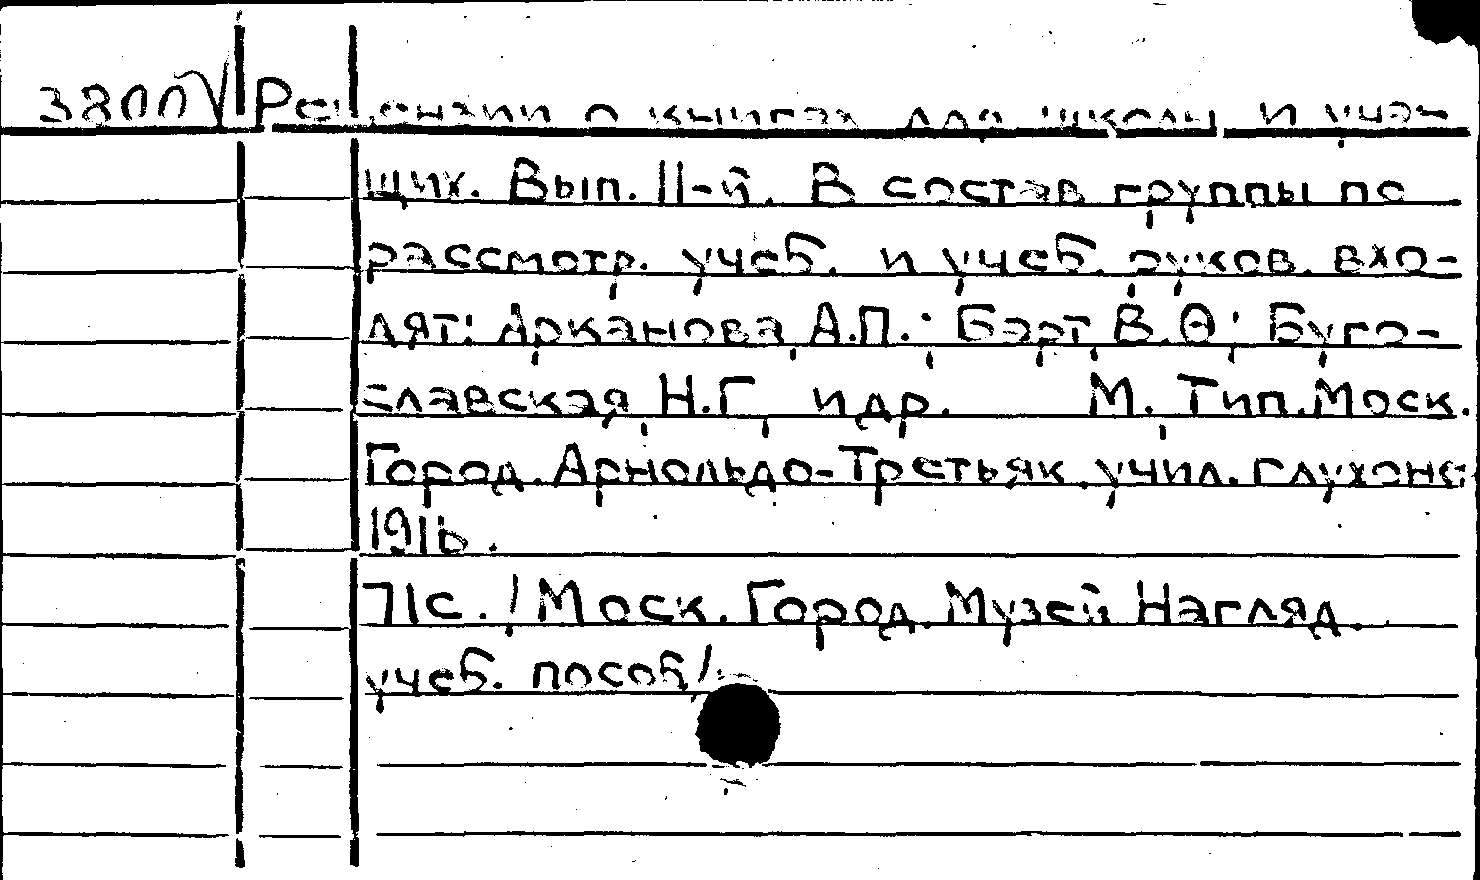 3800 Рецензии о книгах для школы и уча-
щих. Вып. II-й. В состав группы по
рассмотр. учеб. и учеб. руков. вхо-
дят: Арканова А.П.; Бэрт В.Ѳ; Буго-
славская Н.Г. и др. М. Тип. Моск.
Город. Арнольдо-Третьяк. учил. глухоне
1916.
71с. /Моск. Город. Музей Нагляд.
учеб. пособ/.